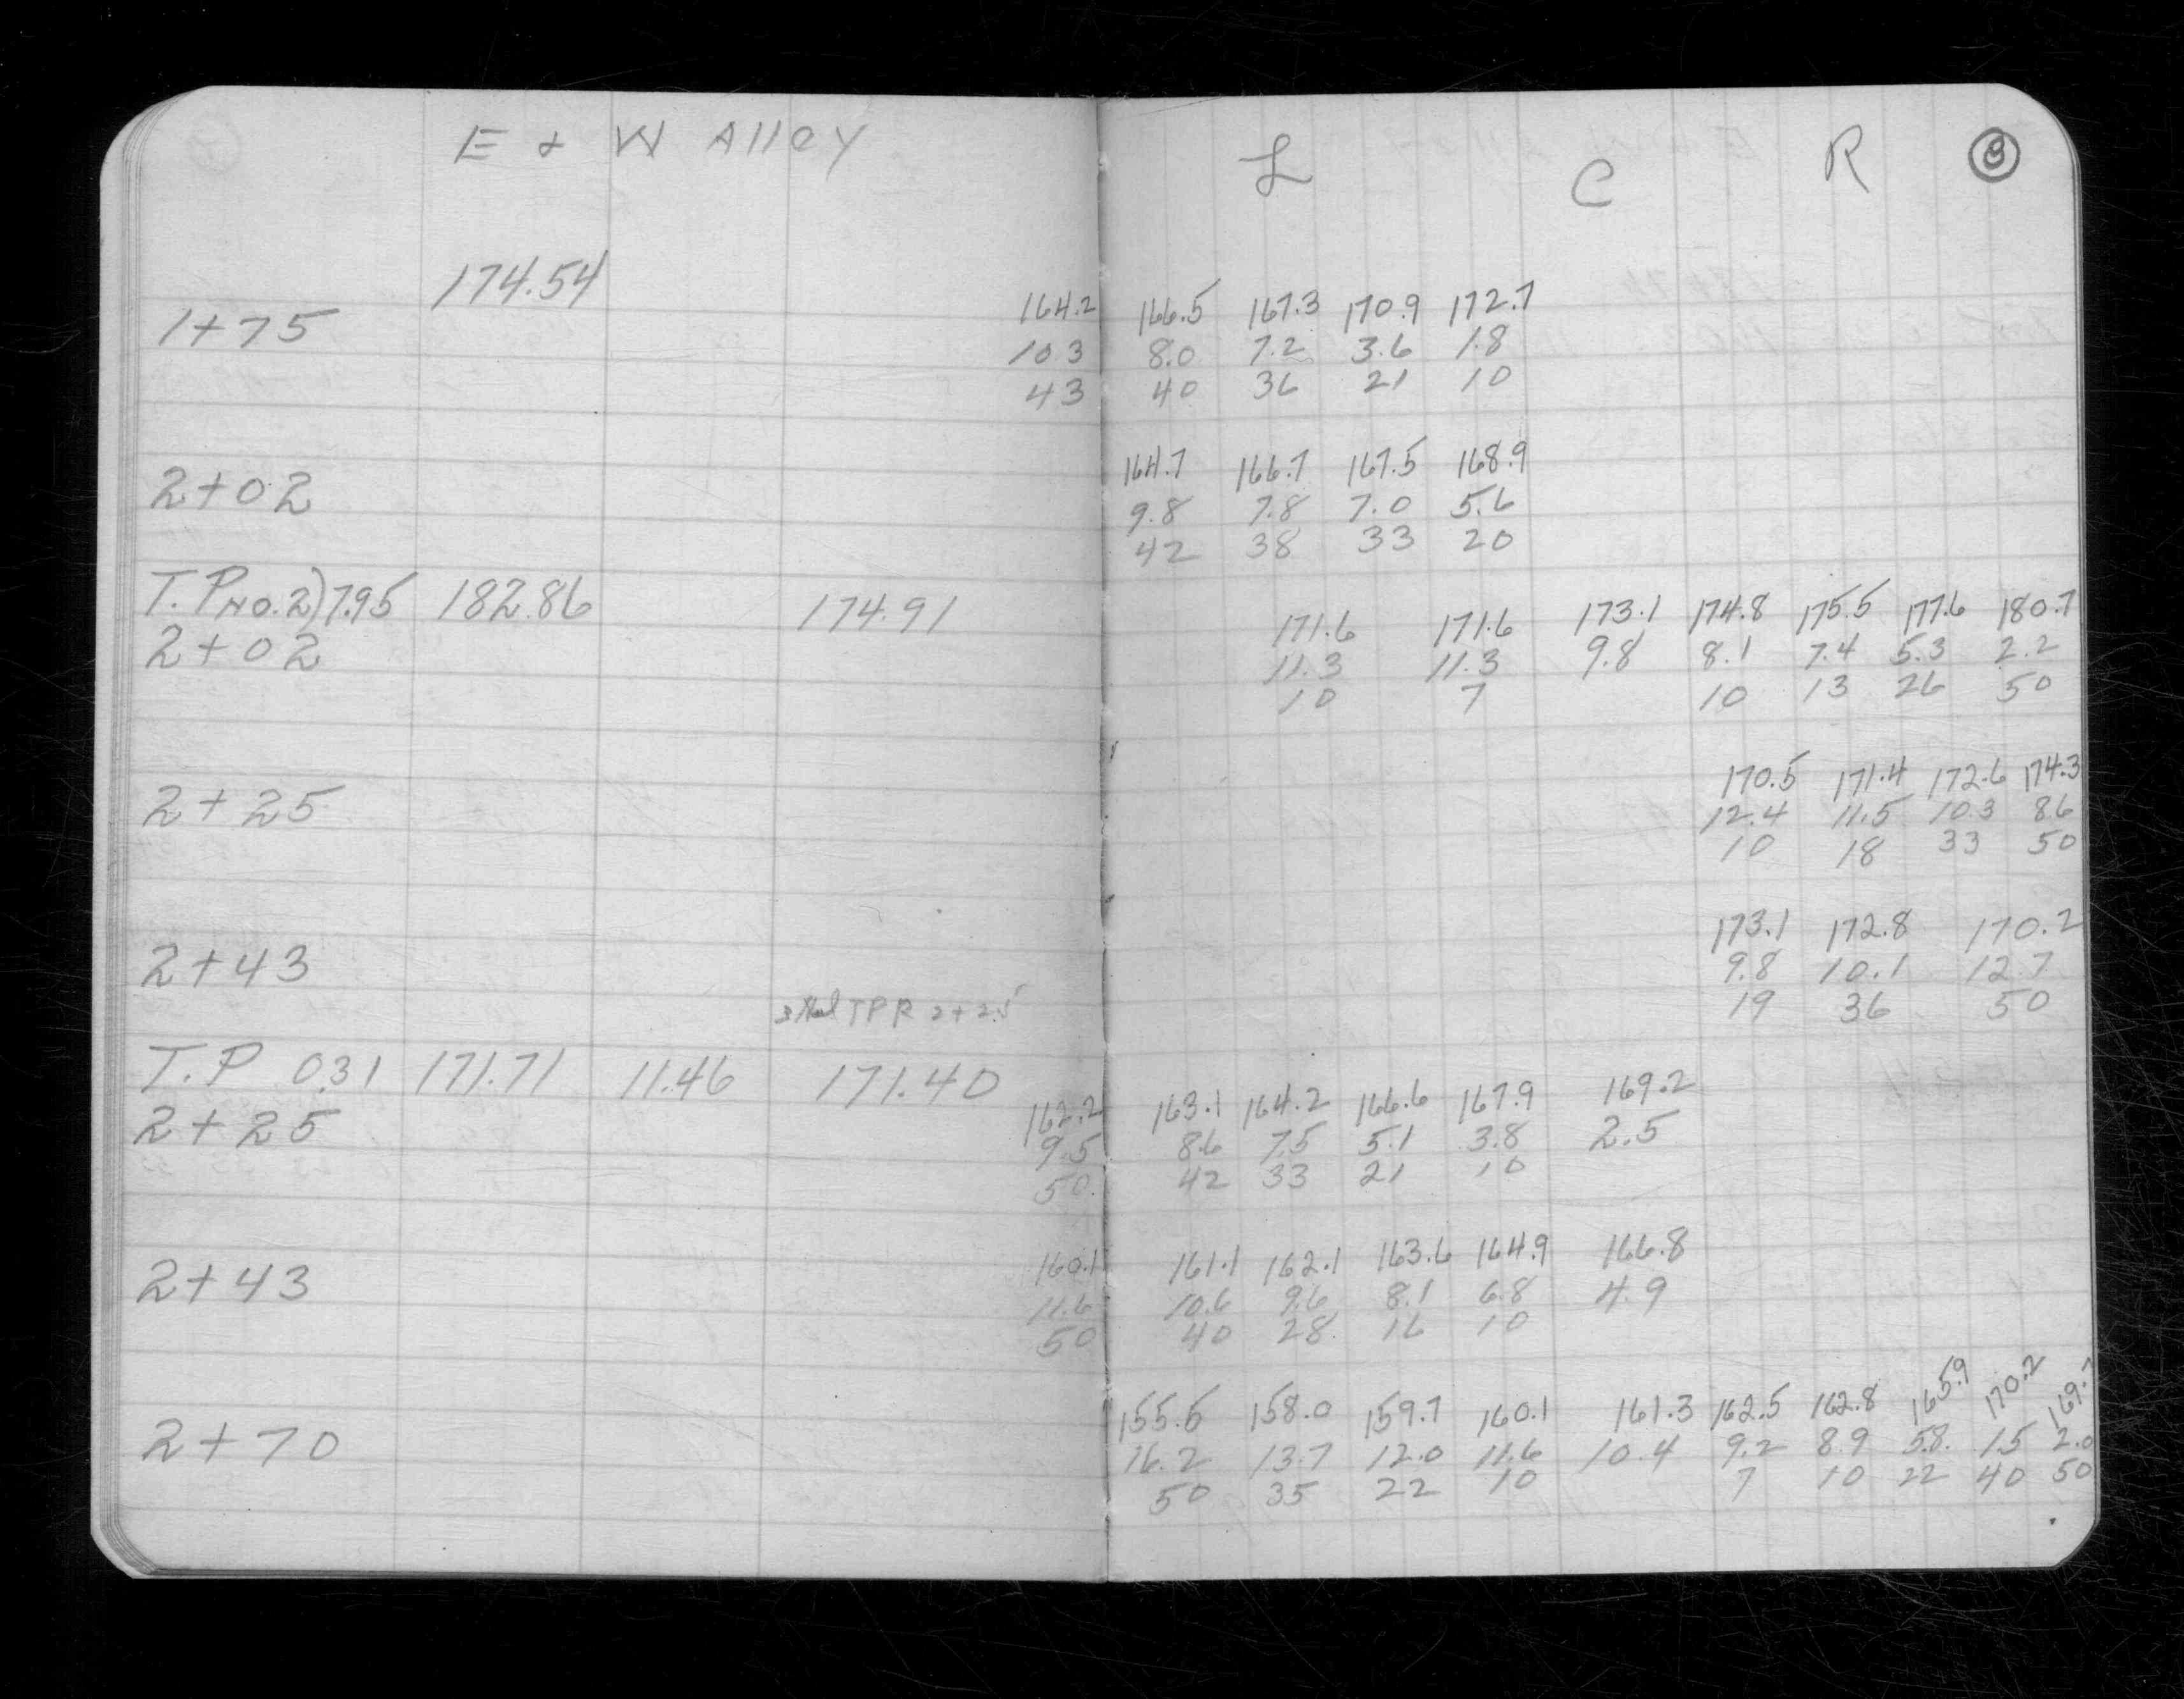 E + W Alley L C R 8
174.54
1+75 164.2 166.5 167.3 170.9 172.7
103 8.0 7.2 3.6 1.8
43 40 36 21 10
164.7 166.7 167.5 168.9
2+02 9.8 7.8 7.0 5.6
42 38 33 20
T.P No. 2) 7.95 182.86 174.91 171.6 171.6 173.1 174.8 175.5 177.6 180.7
2+02 11.3 11.3 9.8 8.1 7.4 5.3 2.2
10 7 10 13 26 50
170.5 171.4 172.6 174.3
2+25 12.4 11.5 103 86
10 18 33 50
173.1 172.8 170.2
2+43 9.8 10.1 12.7
19 36 50
TPR 2+25
T.P 0.31 171.71 11.46 171.40
162.2 163.1 164.2 166.6 167.9 169.2
2+25 9.5 86 7.5 5.1 3.8 2.5
50 42 33 21 10
160.1 161.1 162.1 163.6 164.9 166.8
2+43 11.6 10.6 9.6 8.1 6.8 4.9
50 40 28 16 10
155.5 158.0 159.7 160.1 161.3 162.5 162.8 165.9 170.2 169.7
2+70 16.2 13.7 12.0 11.6 10.4 9.2 8.9 5.8 1.5 2.0
50 35 22 10 7 10 22 40 50